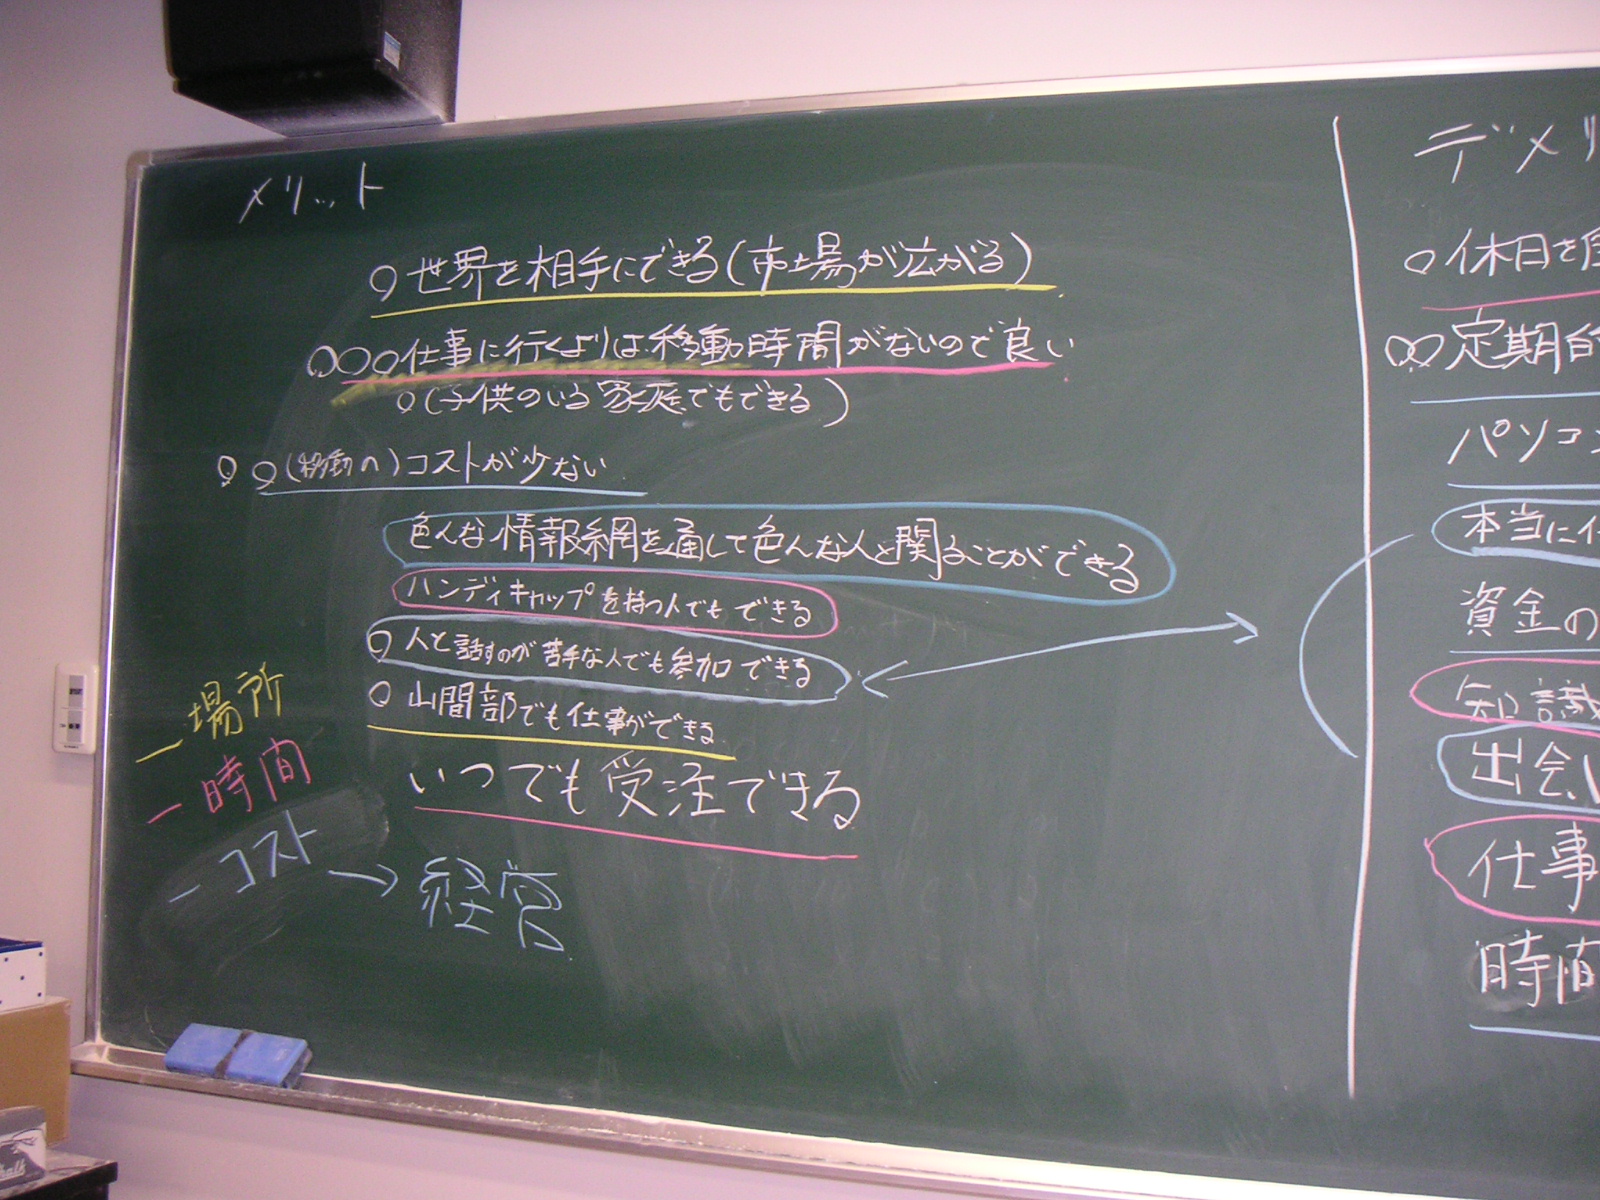 メリット
○世界を相手にできる(市場が広がる)
○○○仕事に行くよりは移動時間がないので良い
○(子供のいる家庭でもできる)
○○(移動の)コストが少ない
色んな情報網を通して色んな人と関ることができる
ハンディキャップを持つ人でもできる
○人と話すのが苦手な人でも参加できる
○山間部でも仕事ができる
いつでも受注できる
ー場所
ー時間
ーコスト→経営
デメリ
○休日を
○○定期的
パソコン
本当に
資金の
知識
出会い
仕事
時間